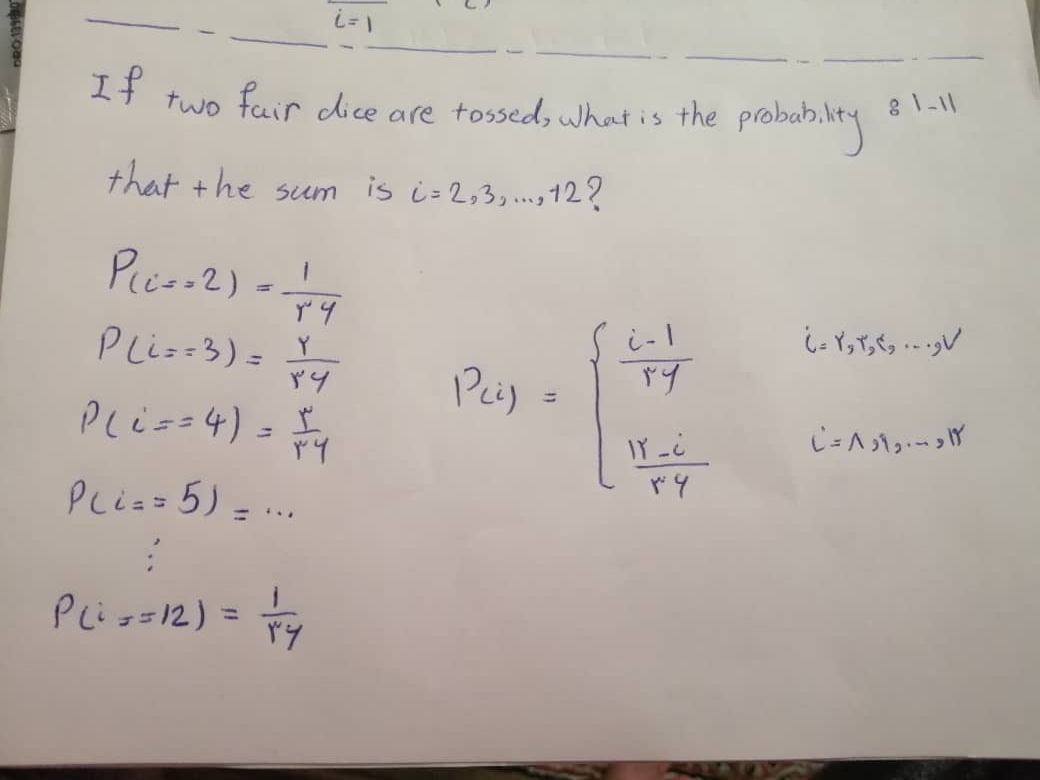 i=1
If two fair dice are tossed, what is the probability : ۱-۱۱
that the sum is i=2,3,...,12?
P(i==2) = ۱/۳۶
P(i==3) = ۲/۳۶
P(i==4) = ۳/۳۶
P(i==5) = ...
⋮
P(i==12) = ۱/۳۶
P(i) = {
i-۱/۳۶ i=۲,۳,۴,...,۷
۱۲-i/۳۶ i=۸,۹,...,۱۲